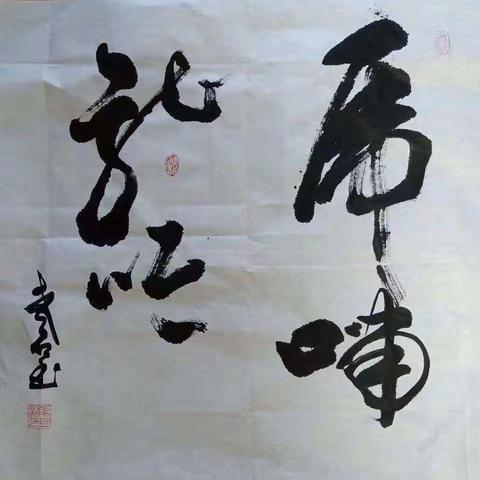 虎啸
龙吟